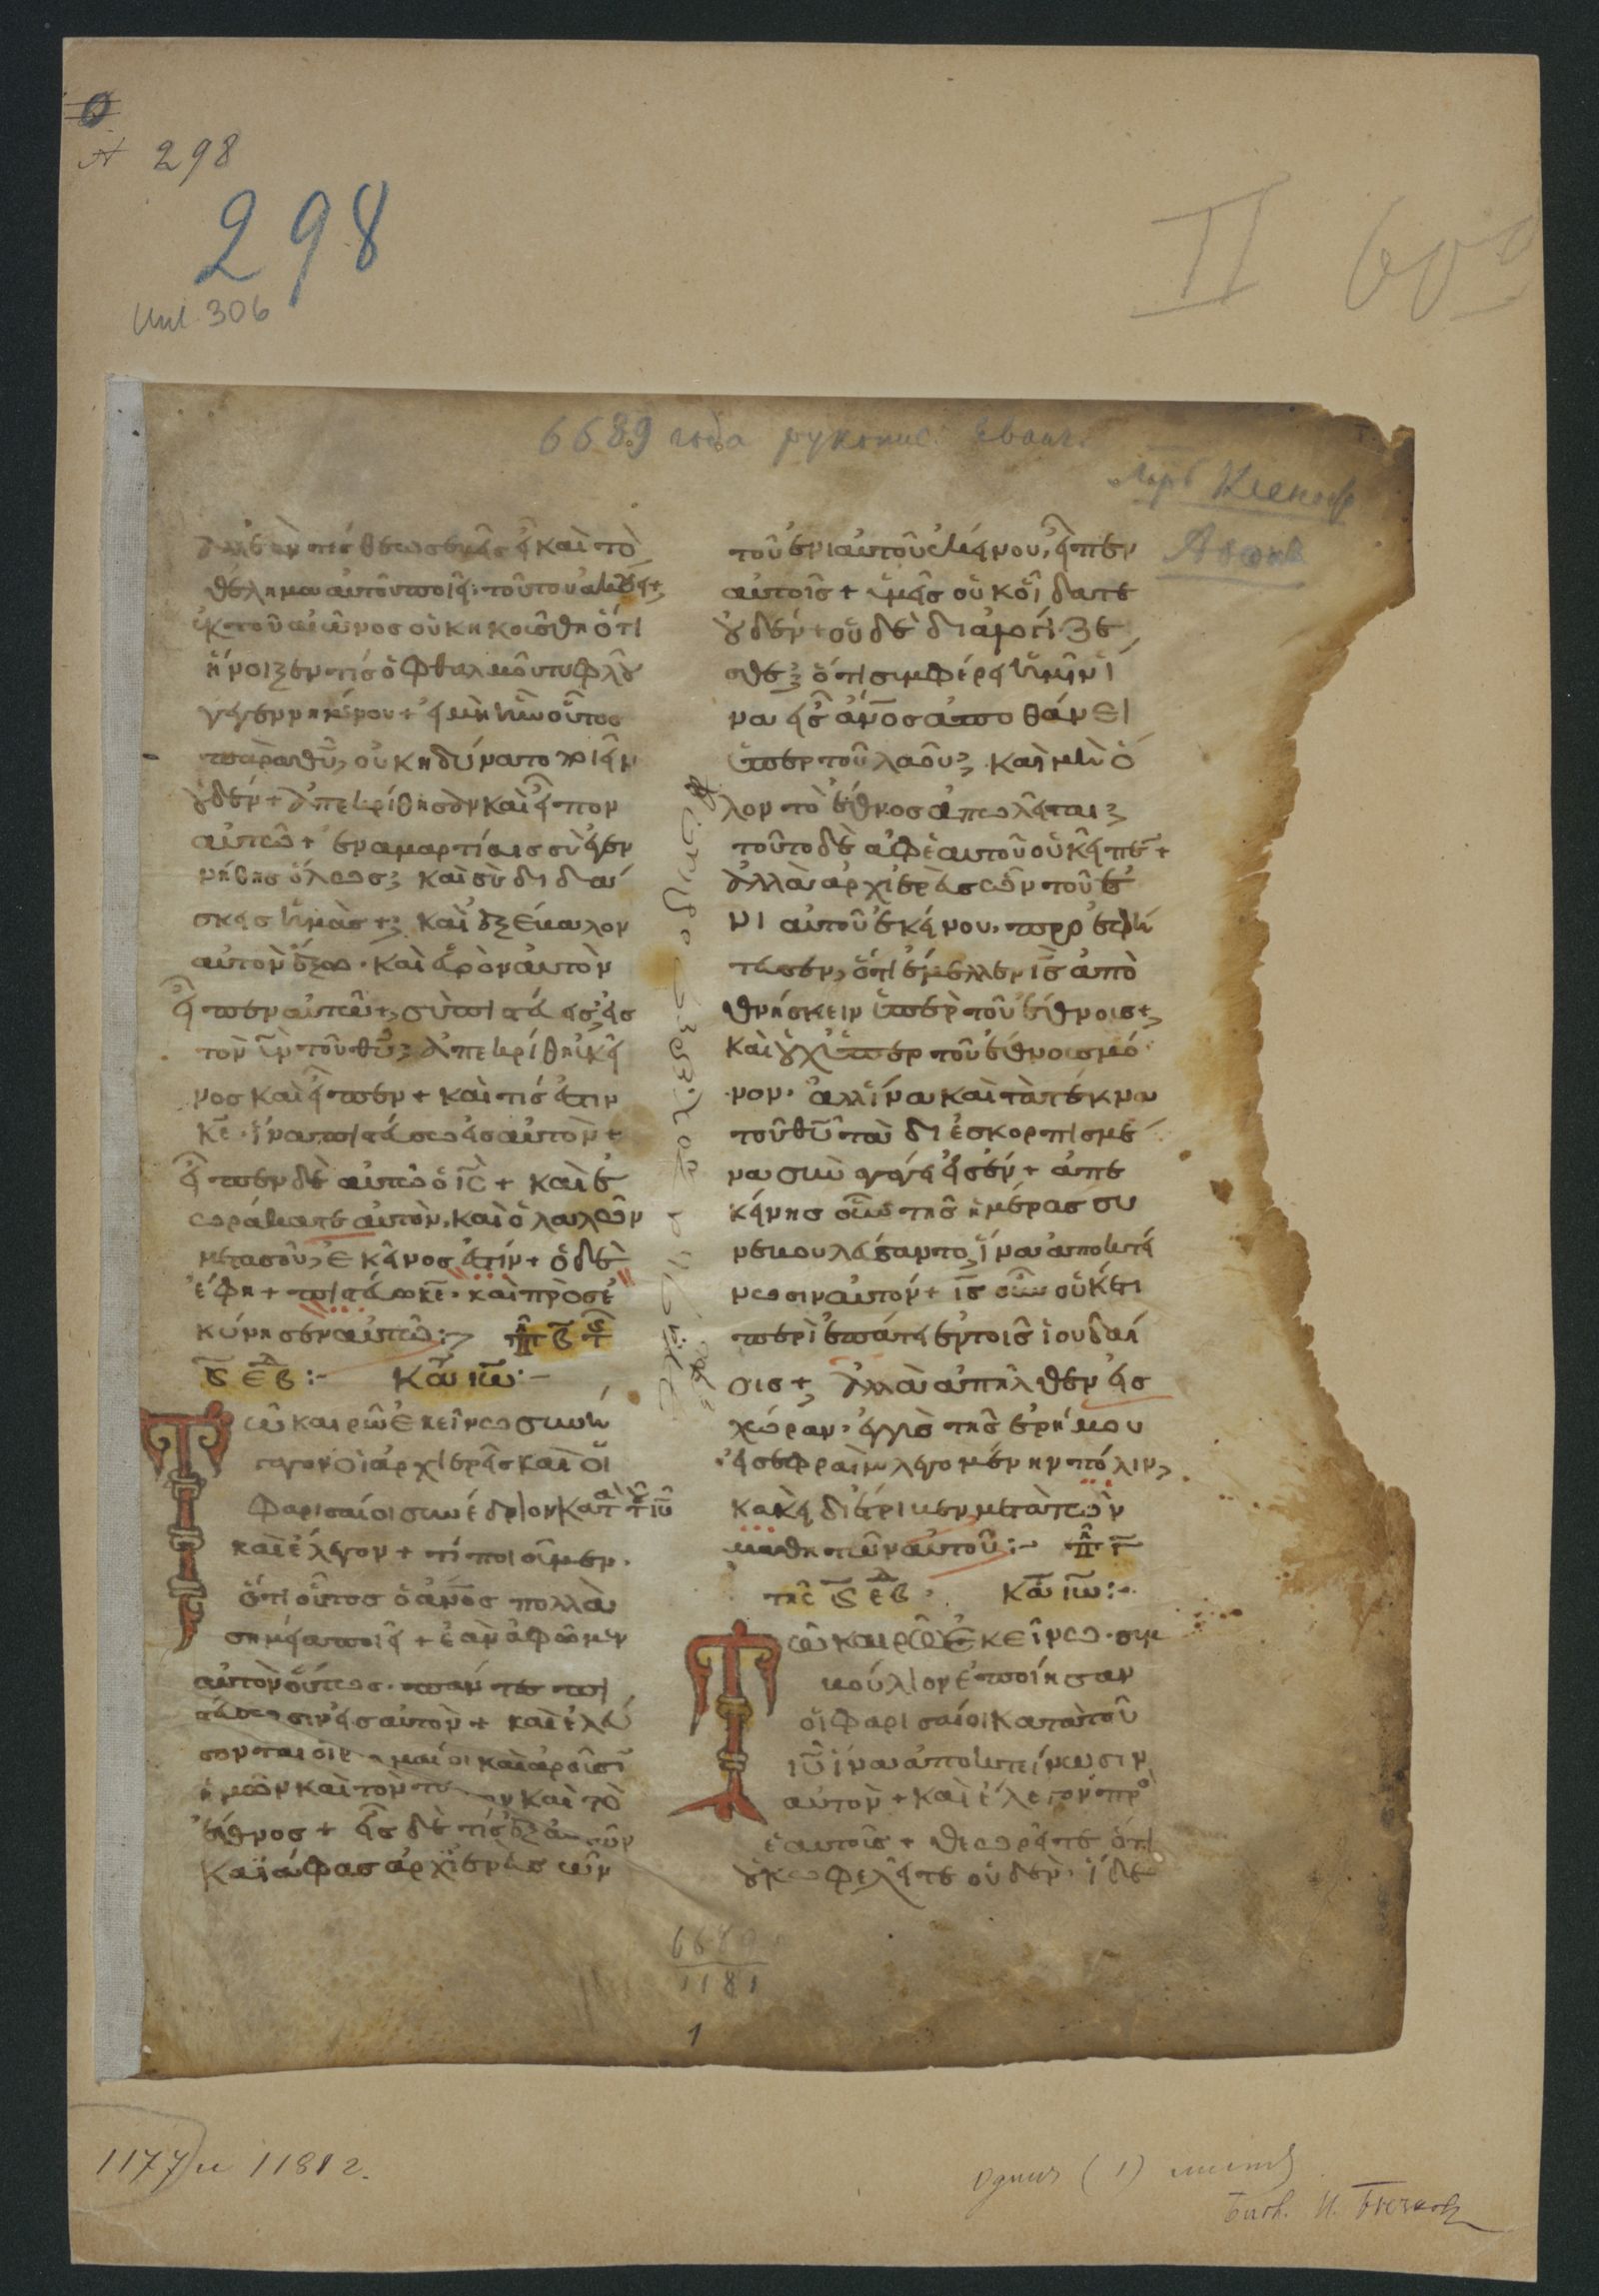 298
298
Uul 306
II 600
6689 года рукопис. Еванг.
Лавр Ксеноф
Афонъ
θεοσεβὴς ᾖ καὶ τὸ
θέλημα αὐτοῦ ποιῇ· τούτου ἀκούει+
ἐκ τοῦ αἰῶνος οὐκ ἠκούσθη ὅτι
ἤνοιξεν τίς ὀφθαλμοῦ τυφλοῦ
γεγεννημένου+ εἰ μὴ ἦν οὗτος
παρὰ θῦ, οὐκ ἠδύνατο ποιεῖν
οὐδέν+ ἀπεκρίθησαν καὶ εἶπον
αὐτῶ+ ἐν ἁμαρτίαις σὺ ἐγεν
νήθης ὅλως; καὶ σὺ διδά
σκεις ἡμᾶς+ καὶ ἐξέβαλον
αὐτὸν ἔξω· καὶ εὑρὸν αὐτὸν
εἶπεν αὐτῶ+ σὺ πιστεύεις εἰς
τὸν υἱν τοῦ θῦ; ἀπεκρίθη ἐκεῖ
νος καὶ εἶπεν+ καὶ τίς ἐστιν
κε· ἵνα πιστεύσω εἰς αὐτὸν+
εἶπεν δὲ αὐτῶ ὁ ις+ καὶ ἑ
ώρακατε αὐτὸν, καὶ ὁ λαλῶν
μετὰ σοῦ, ἐκεῖνος ἐστίν+ ὁ δὲ
ἔφη+ πιστεύω κε· καὶ προσε
κύνησεν αὐτῶ:
κα ιω:-
Τῶ καιρῶ ἐκείνω συνή
γαγον οἱ ἀρχιερεῖς καὶ οἱ
φαρισαίοι συνέδριον κατὰ τοῦ ιυ
καὶ ἔλεγον+ τί ποιοῦμεν·
ὅτι οὗτος ὁ ἄνος πολλὰ
σημεῖα ποιεῖ+ ἐὰν ἀφῶμεν
αὐτὸν οὕτως· πάντες πι
στεύσωσιν εἰς αὐτὸν+ καὶ ἐλεύ
σονται οἱ ρωμαίοι καὶ ἀροῦσι
ἡμῶν καὶ τὸν τόπον καὶ τὸ
ἔθνος+ εἷς δὲ τίς ἐξ αὐτῶν
Καϊάφας ἀρχιερεὺς ὢν
τοῦ ἐνιαυτοῦ ἐκείνου, εἶπεν
αὐτοῖς+ ὑμεῖς οὐκ οἴδατε
οὐδέν+ οὐδὲ διαλογίζε
σθε; ὅτι συμφέρει ἡμῖν ἵ
να εἷς ἄνος ἀποθάνει
ὑπὲρ τοῦ λαοῦ; καὶ μὴ ὅ
λον τὸ ἔθνος ἀπωλεῖται;
τοῦτο δὲ ἀφ' ἑαυτοῦ οὐκ εἶπε+
ἀλλὰ ἀρχιερεὺς ὢν τοῦ ἐ
νιαυτοῦ ἐκείνου· προεφή
τευσεν, ὅτι ἔμελλεν ις ἀπο
θνήσκειν ὑπὲρ τοῦ ἔθνους+
καὶ οὐχ ὑπὲρ τοῦ ἔθνους μό
νον· ἀλλ' ἵνα καὶ τὰ τέκνα
τοῦ θῦ τὰ διεσκορπισμέ
να συναγάγει εἰς ἕν+ ἀπ' ἐ
κείνης οὖν τῆς ἡμέρας συ
νεβουλεύσαντο, ἵνα ἀποκτεί
νωσιν αὐτόν+ ις οὖν οὐκέτι
περιεπάτει ἐν τοῖς ἰουδαί
οις+ ἀλλὰ ἀπῆλθεν εἰς
χώραν· ἐγγὺς τῆς ἐρήμου
εἰς ἐφραὶμ λεγομένην πόλιν,
κακεῖ διέτριβεν μετὰ τῶν
μαθητῶν αὐτοῦ:-
τῆς κα ιω:-
Τῶ καιρῶ ἐκείνω· συμ
βούλιον ἐποίησαν
οἱ φαρισαίοι κατὰ τοῦ
ιυ ἵνα ἀποκτείνωσιν
αὐτόν+ καὶ ἔλεγον πρὸ
ἑαυτοῖς+ θεωρεῖτε ὅτι
οὐκ ὠφελεῖτε οὐδέν· ἴδε
6689
1181
1
1177 и 1181 г.
Одинъ (1) листъ
Библ. И. Бычковъ